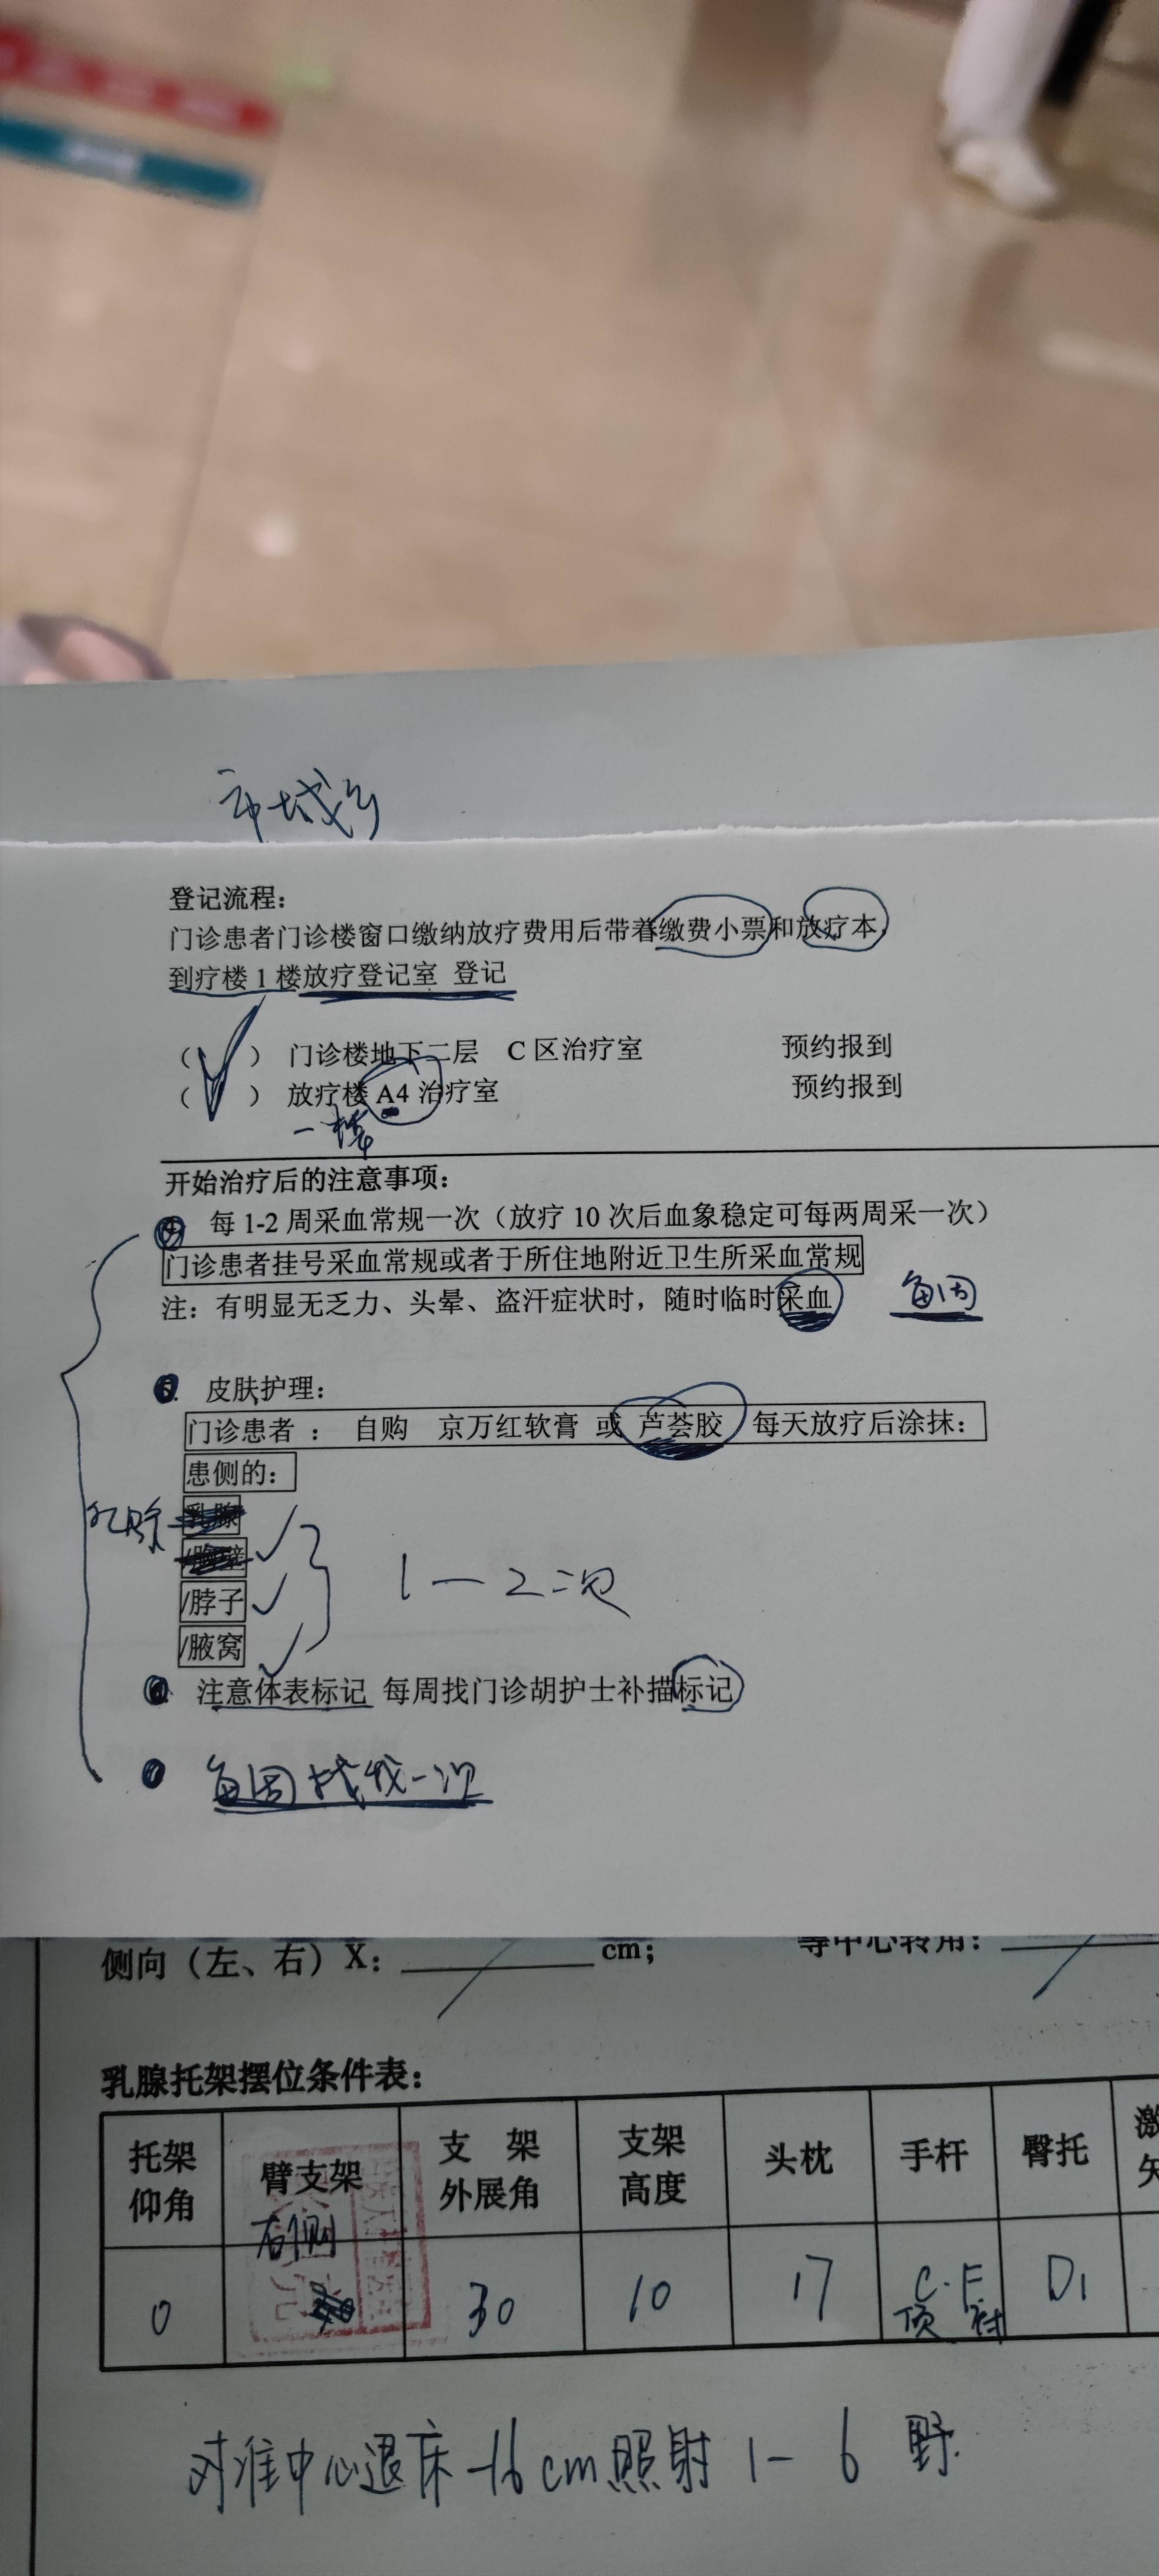 市城乡
登记流程：
门诊患者门诊楼窗口缴纳放疗费用后带着缴费小票和放疗本，
到疗楼 1 楼放疗登记室 登记
（ ） 门诊楼地下二层 C 区治疗室 预约报到
（ ） 放疗楼 A4 治疗室 预约报到
一楼
开始治疗后的注意事项：
每 1-2 周采血常规一次（放疗 10 次后血象稳定可每两周采一次）
门诊患者挂号采血常规或者于所住地附近卫生所采血常规
注：有明显无乏力、头晕、盗汗症状时，随时临时采血 每周
皮肤护理：
门诊患者： 自购 京万红软膏 或 芦荟胶 每天放疗后涂抹：
患侧的：
乳腺 乳腺
/胸壁
/脖子 1—2次
/腋窝
注意体表标记 每周找门诊胡护士补描标记
每周找我一次
侧向（左、右）X： cm； 等中心转角：
乳腺托架摆位条件表：
托架仰角 臂支架 支架外展角 支架高度 头枕 手杆 臀托
右侧
0 30 10 17 C.F D1
对准中心退床-16cm照射 1- 6 野.